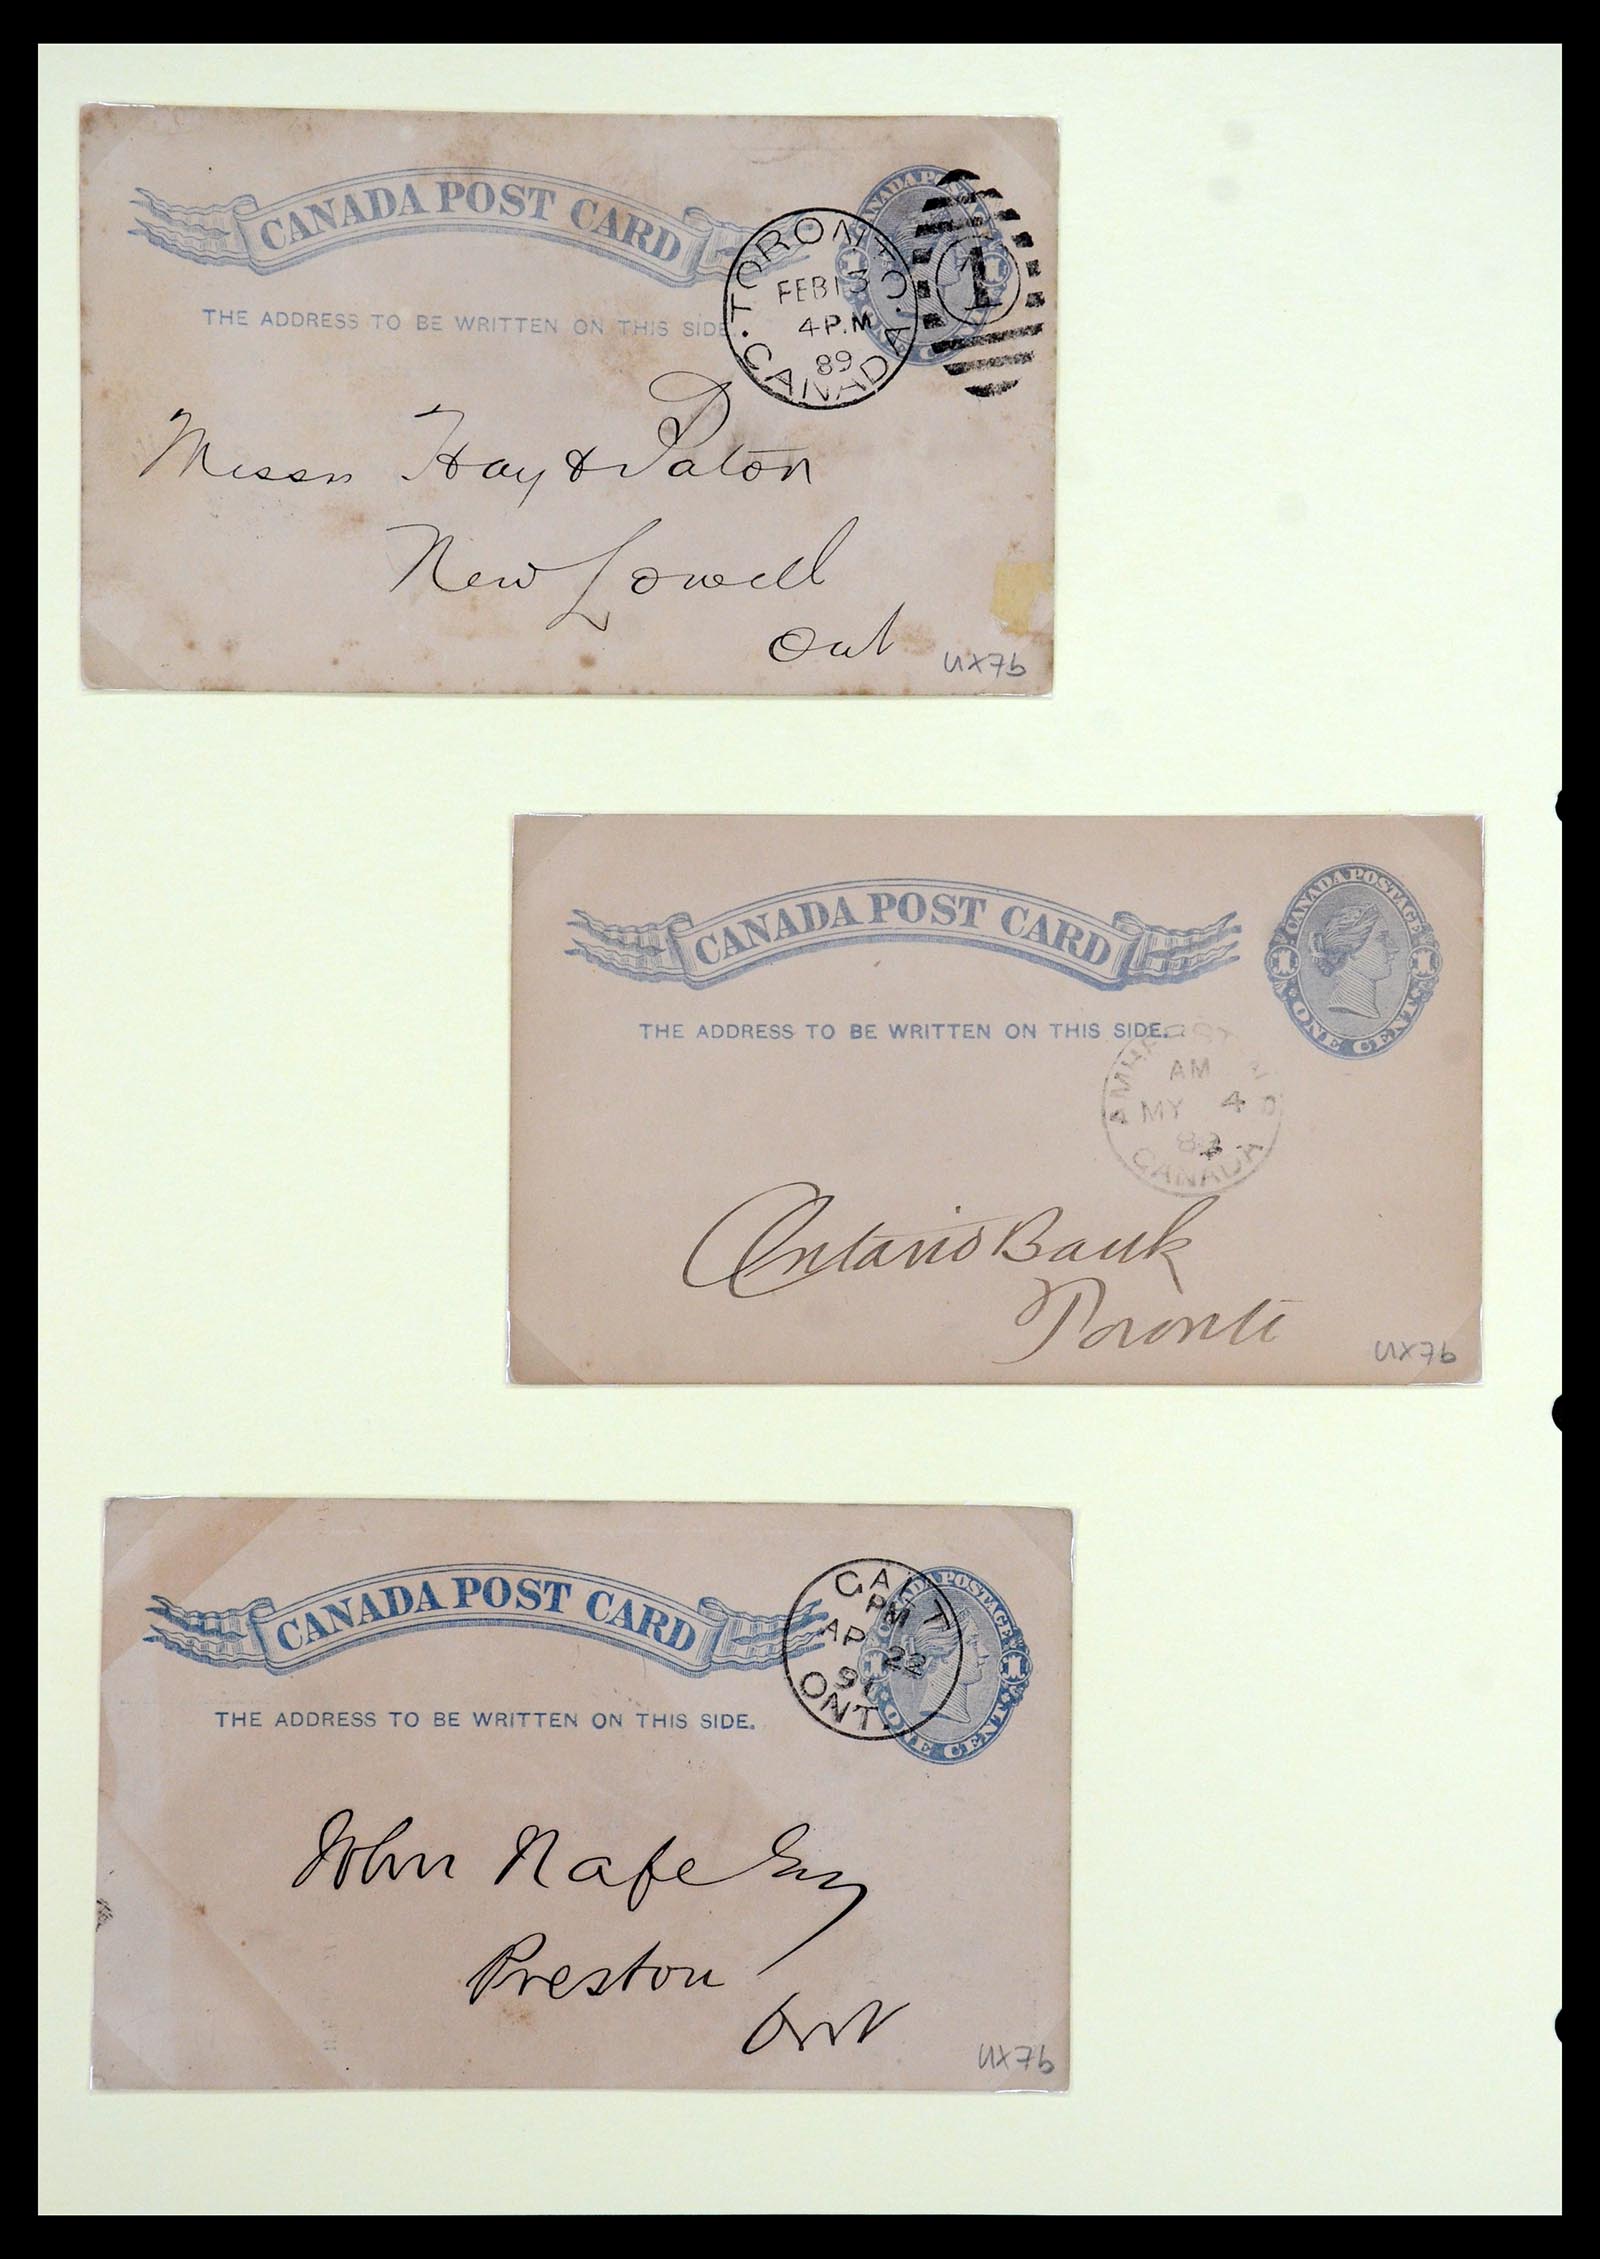 CANADA POST CARD
CANADA POSTAGE
1 1
ONE CENT
THE ADDRESS TO BE WRITTEN ON THIS SIDE.
TORONTO
FEB 13
4 P.M
89
CANADA
1
Messrs Hay & Paton
New Lowell
Ont
UX7b
CANADA POST CARD
CANADA POSTAGE
1 1
ONE CENT
THE ADDRESS TO BE WRITTEN ON THIS SIDE.
AM
MY 4
CANADA
Ontario Bank
Toronto
UX7b
CANADA POST CARD
CANADA POSTAGE
1 1
ONE CENT
THE ADDRESS TO BE WRITTEN ON THIS SIDE.
GALT
PM
AP 22
91
ONT.
John Nafe Esq
Preston
Ont
UX7b